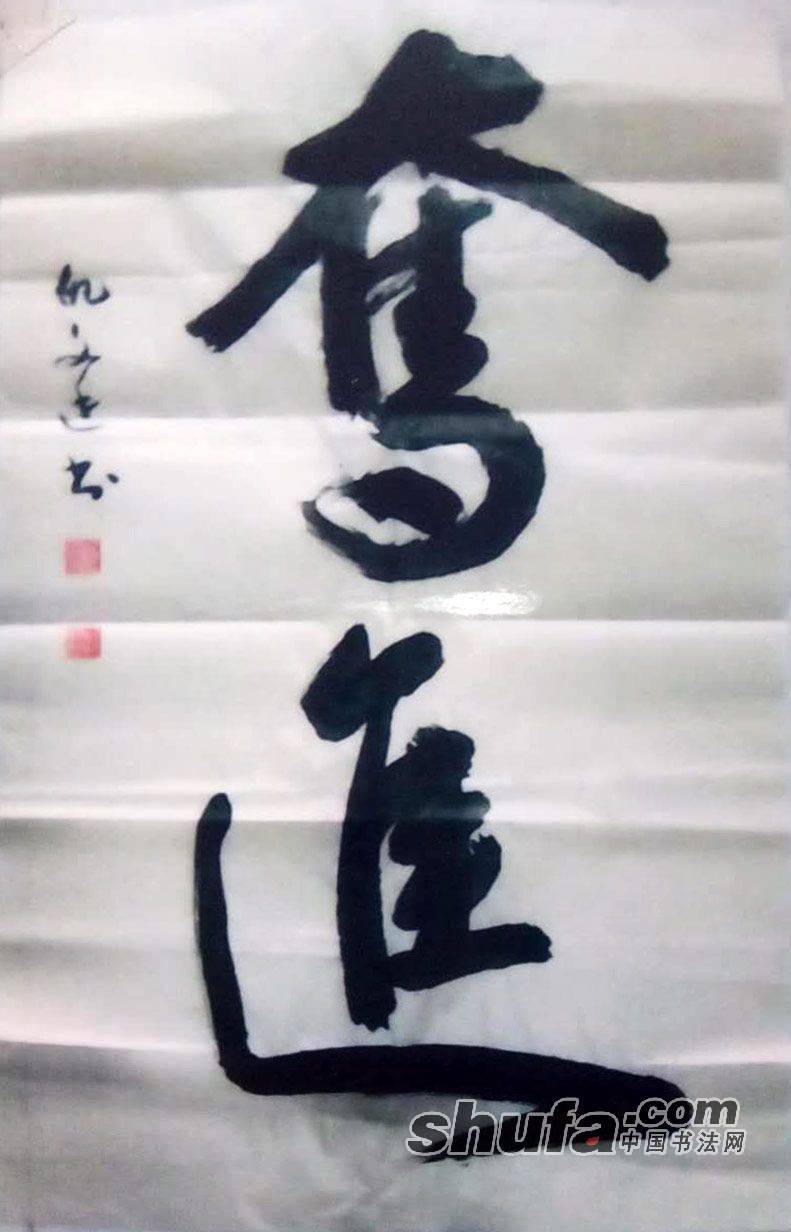 奮進
书
shufa.com
中国书法网